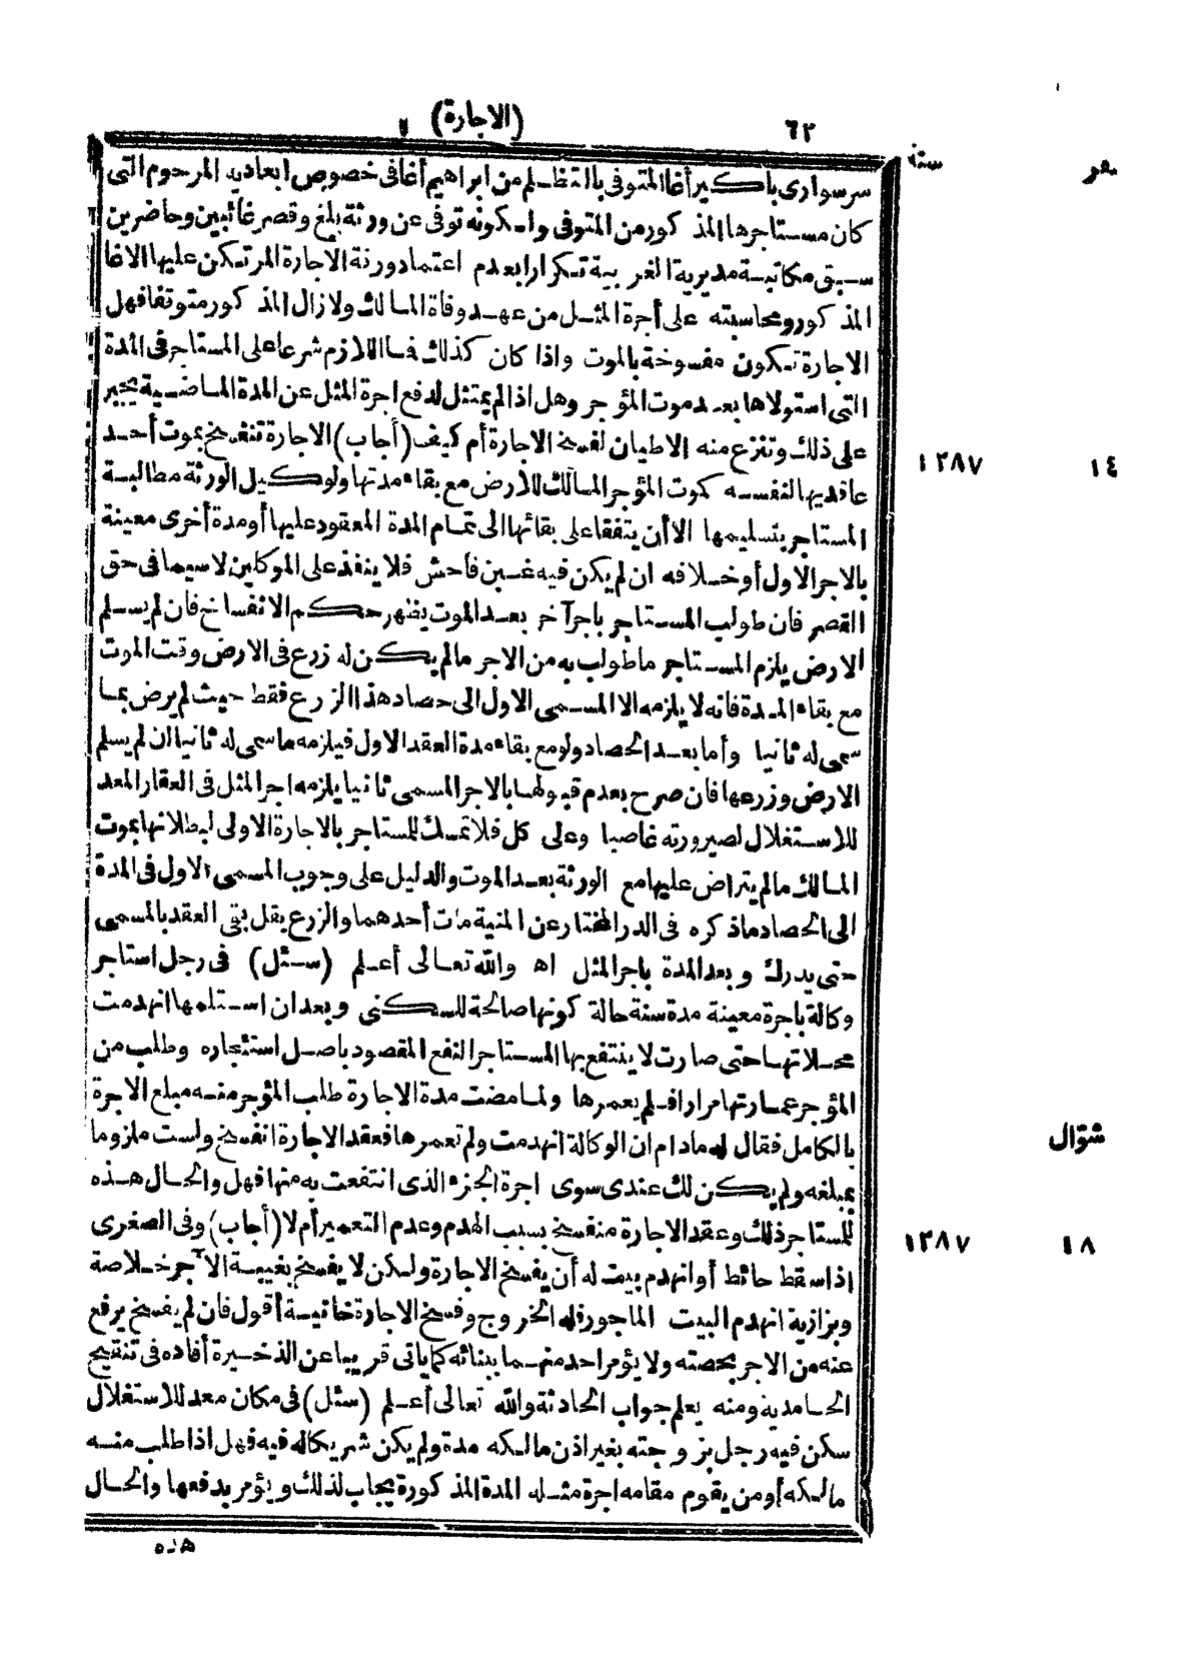 ٦٢ (الاجارة)
سنة
سرسواری باكير أغا المتوفى بالتظلم من ابراهيم أغا فى خصوص ابعادية المرحوم التى
كان مستاجرها المذكور من المتوفى ولكونه توفى عن ورثة بلغ وقصر غائبين وحاضرين
سبق مكاتبة مديرية الغربية تكرارا بعدم اعتماد ورثة الاجارة المرتكن عليها الاغا
المذكور ومحاسبته على أجرة المثل من عهد وفاة المالك ولازال المذكور متوقفا فهل
الاجارة تكون مفسوخة بالموت واذا كان كذلك فما اللازم شرعا على المستاجر فى المدة
التى استولاها بعد موت المؤجر وهل اذا لم يمتثل لدفع اجرة المثل عن المدة الماضية يجبر
على ذلك وتنزع منه الاطيان لفسخ الاجارة أم كيف (أجاب) الاجارة تنفسخ بموت أحد
١٤ ١٢٨٧
عاقديها لنفسه كموت المؤجر المالك للارض مع بقاء مدتها ولوكيل الورثة مطالبة
المستاجر بتسليمها الا أن يتفقا على بقائها الى تمام المدة المعقود عليها أو مدة أخرى معينة
بالاجر الاول أو خلافه ان لم يكن فيه غبن فاحش فلا ينفذ على الموكلين لاسيما فى حق
القصر فان طولب المستاجر باجر آخر بعد الموت يظهر حكم الانفساخ فان لم يسلم
الارض يلزم المستاجر ما طولب به من الاجر مالم يكن له زرع فى الارض وقت الموت
مع بقاء المدة فانه لا يلزمه الا المسمى الاول الى حصاد هذا الزرع فقط حيث لم يرض بما
سمى له ثانيا وأما بعد الحصاد ولو مع بقاء مدة العقد الاول فيلزمه ما سمى له ثانيا ان لم يسلم
الارض وزرعها فان صرح بعدم قبولها بالاجر المسمى ثانيا يلزمه اجر المثل فى العقار المعد
للاستغلال لصيرورته غاصبا وعلى كل فلا تمسك للمستاجر بالاجارة الاولى لبطلانها بموت
المالك مالم يتراض عليها مع الورثة بعد الموت والدليل على وجوب المسمى الاول فى المدة
الى الحصاد ما ذكره فى الدر المختار عن المنية مات أحدهما والزرع بقل بقى العقد بالمسمى
حتى يدرك وبعد المدة باجر المثل اه والله تعالى أعلم (سئل) فى رجل استاجر
وكالة باجرة معينة مدة سنة حالة كونها صالحة للسكنى وبعد ان استلمها انهدمت
محلاتها حتى صارت لا ينتفع بها المستاجر النفع المقصود باصل استئجاره وطلب من
المؤجر عمارتها مرارا فلم يعمرها ولما مضت مدة الاجارة طلب المؤجر منه مبلغ الاجرة
بالكامل فقال له مادام ان الوكالة انهدمت ولم تعمرها فعقد الاجارة انفسخ ولست ملزوما
شوّال
بمبلغه ولم يكن لك عندى سوى اجرة الجزء الذى انتفعت به منها فهل والحال هذه
للمستاجر ذلك وعقد الاجارة منفسخ بسبب الهدم وعدم التعمير أم لا (أجاب) وفى الصغرى
١٨ ١٢٨٧
اذا سقط حائط أو انهدم بيت له أن يفسخ الاجارة ولكن لا يفسخ بغيبة الآجر خلاصة
وبزازية انهدم البيت المأجور فله الخروج وفسخ الاجارة خانية أقول فان لم يفسخ يرفع
عنه من الاجر بحصته ولا يؤمر احد منهما ببنائه كما ياتى قريبا عن الذخيرة أفاده فى تنقيح
الحامدية ومنه يعلم جواب الحادثة والله تعالى أعلم (سئل) فى مكان معد للاستغلال
سكن فيه رجل بزوجته بغير اذن مالكه مدة ولم يكن شريكا له فيه فهل اذا طلب منه
مالكه أو من يقوم مقامه اجرة مثله المدة المذكورة يجاب لذلك ويؤمر بدفعها والحال
هذه